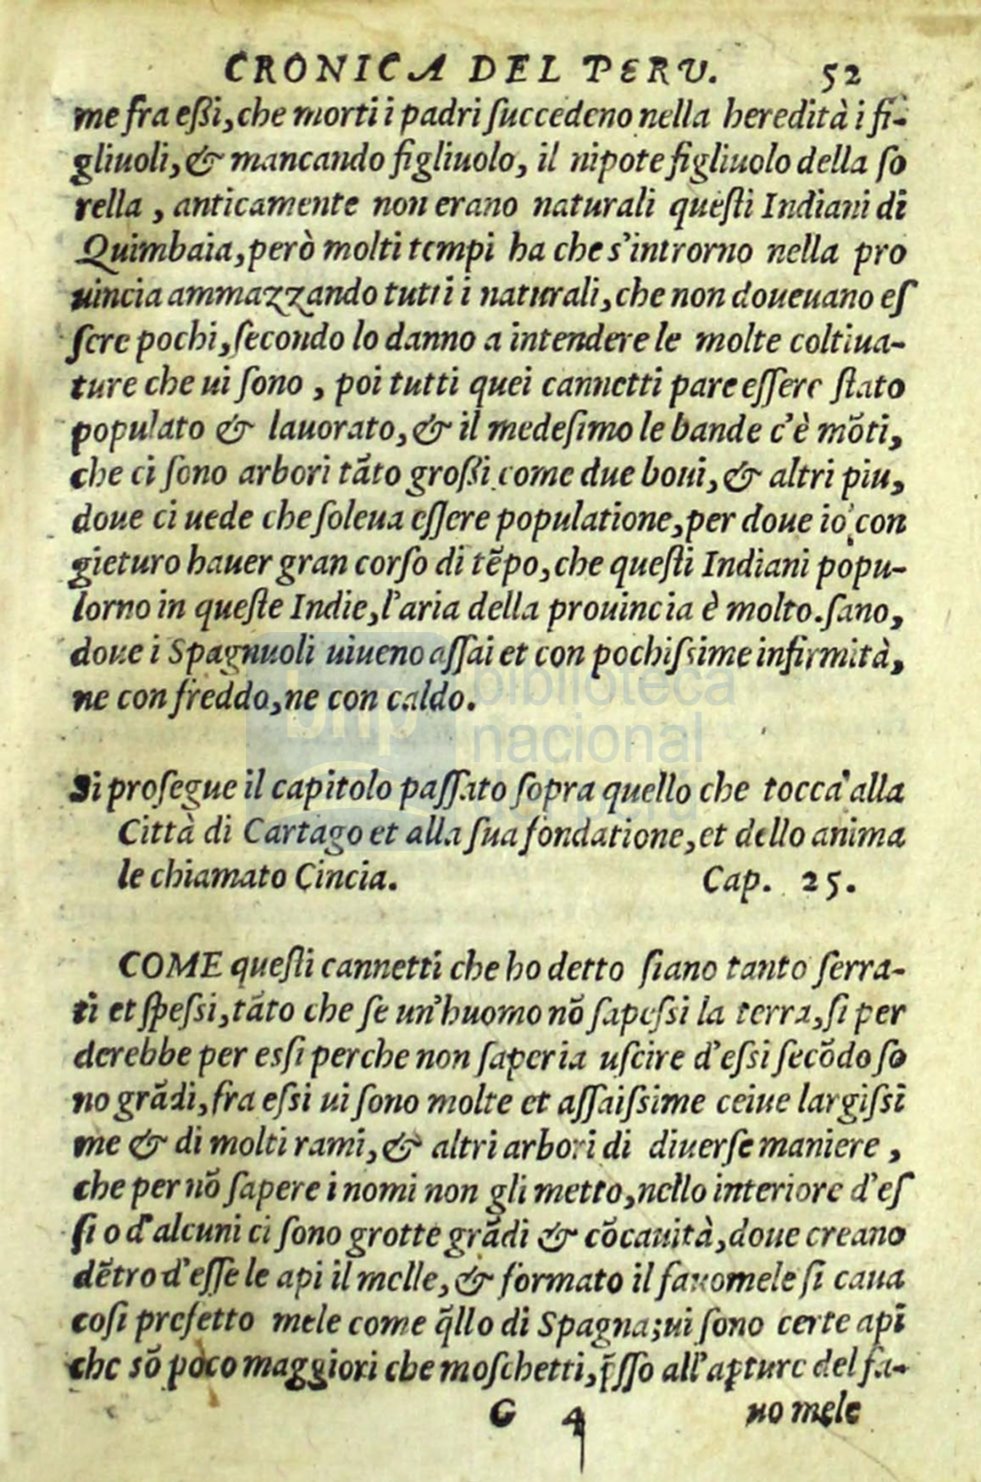 CRONICA DEL PERU. 52
me fra eßi, che morti i padri ſuccedeno nella heredità i fi-
gliuoli, & mancando figliuolo, il nipote figliuolo della ſo
rella, anticamente non erano naturali queſti Indiani di
Quimbaia, però molti tempi ha che s'introrno nella pro
uincia ammazzando tutti i naturali, che non doueuano eſ
ſere pochi, ſecondo lo danno a intendere le molte coltiua-
ture che ui ſono, poi tutti quei cannetti pare eſſere ſtato
populato & lauorato, & il medeſimo le bande c'è mõti,
che ci ſono arbori tãto großi come due boui, & altri piu,
doue ci uede che ſoleua eſſere populatione, per doue io con
gieturo hauer gran corſo di tẽpo, che queſti Indiani popu-
lorno in queſte Indie, l'aria della prouincia è molto. ſano,
doue i Spagnuoli uiueno aſſai et con pochiſsime infirmità,
ne con freddo, ne con caldo.
bnp biblioteca
nacional
Si proſegue il capitolo paſſato ſopra quello che tocca alla
Città di Cartago et alla ſua fondatione, et dello anima
le chiamato Cincia. Cap. 25.
COME queſti cannetti che ho detto ſiano tanto ſerra-
ti et ſpeſsi, tãto che ſe un'huomo nõ ſapeſsi la terra, ſi per
derebbe per eſsi perche non ſaperia uſcire d'eſsi ſecõdo ſo
no grãdi, fra eſsi ui ſono molte et aſſaiſsime ceiue largiſsi
me & di molti rami, & altri arbori di diuerſe maniere,
che per nõ ſapere i nomi non gli metto, nello interiore d'eſ
ſi o d'alcuni ci ſono grotte grãdi & cõcauità, doue creano
dẽtro d'eſſe le api il melle, & formato il fauomele ſi caua
coſi prefetto mele come q̃llo di Spagna; ui ſono certe api
che sõ poco maggiori che moſchetti, p̃ſſo all'aꝑture del fa-
G 4 uo mele